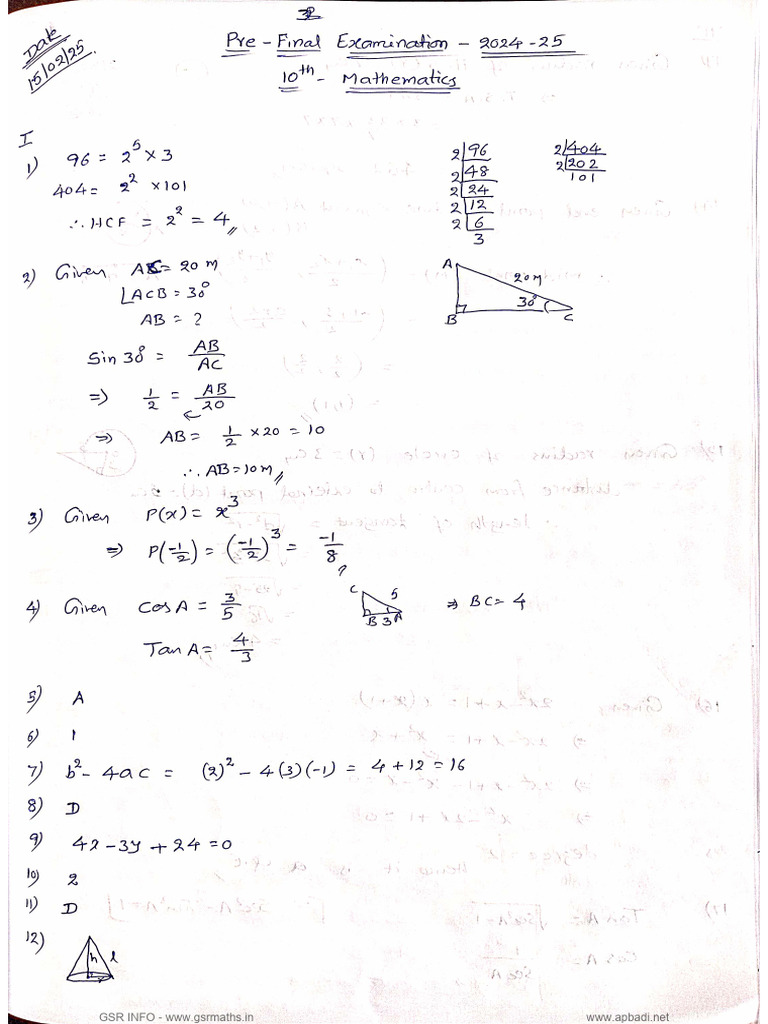 Date
15/02/25
Pre-Final Examination - 2024-25
10th - Mathematics
I
1) 96 = 2^5 × 3
404 = 2^2 × 101
∴ HCF = 2^2 = 4
2 | 96
2 | 48
2 | 24
2 | 12
2 | 6
3
2 | 404
2 | 202
101
2) Given AC = 20 m
∠ACB = 30°
AB = ?
A
20m
30°
B
C
Sin 30° = AB/AC
⇒ 1/2 = AB/20
⇒ AB = 1/2 × 20 = 10
∴ AB = 10 m
3) Given P(x) = x^3
⇒ P(-1/2) = (-1/2)^3 = -1/8
4) Given Cos A = 3/5
C
5
B 3 A
⇒ BC = 4
Tan A = 4/3
5) A
6) 1
7) b^2 - 4ac = (2)^2 - 4(3)(-1) = 4 + 12 = 16
8) D
9) 4x - 3y + 24 = 0
10) 2
11) D
12)
h
l
GSR INFO - www.gsrmaths.in
www.apbadi.net